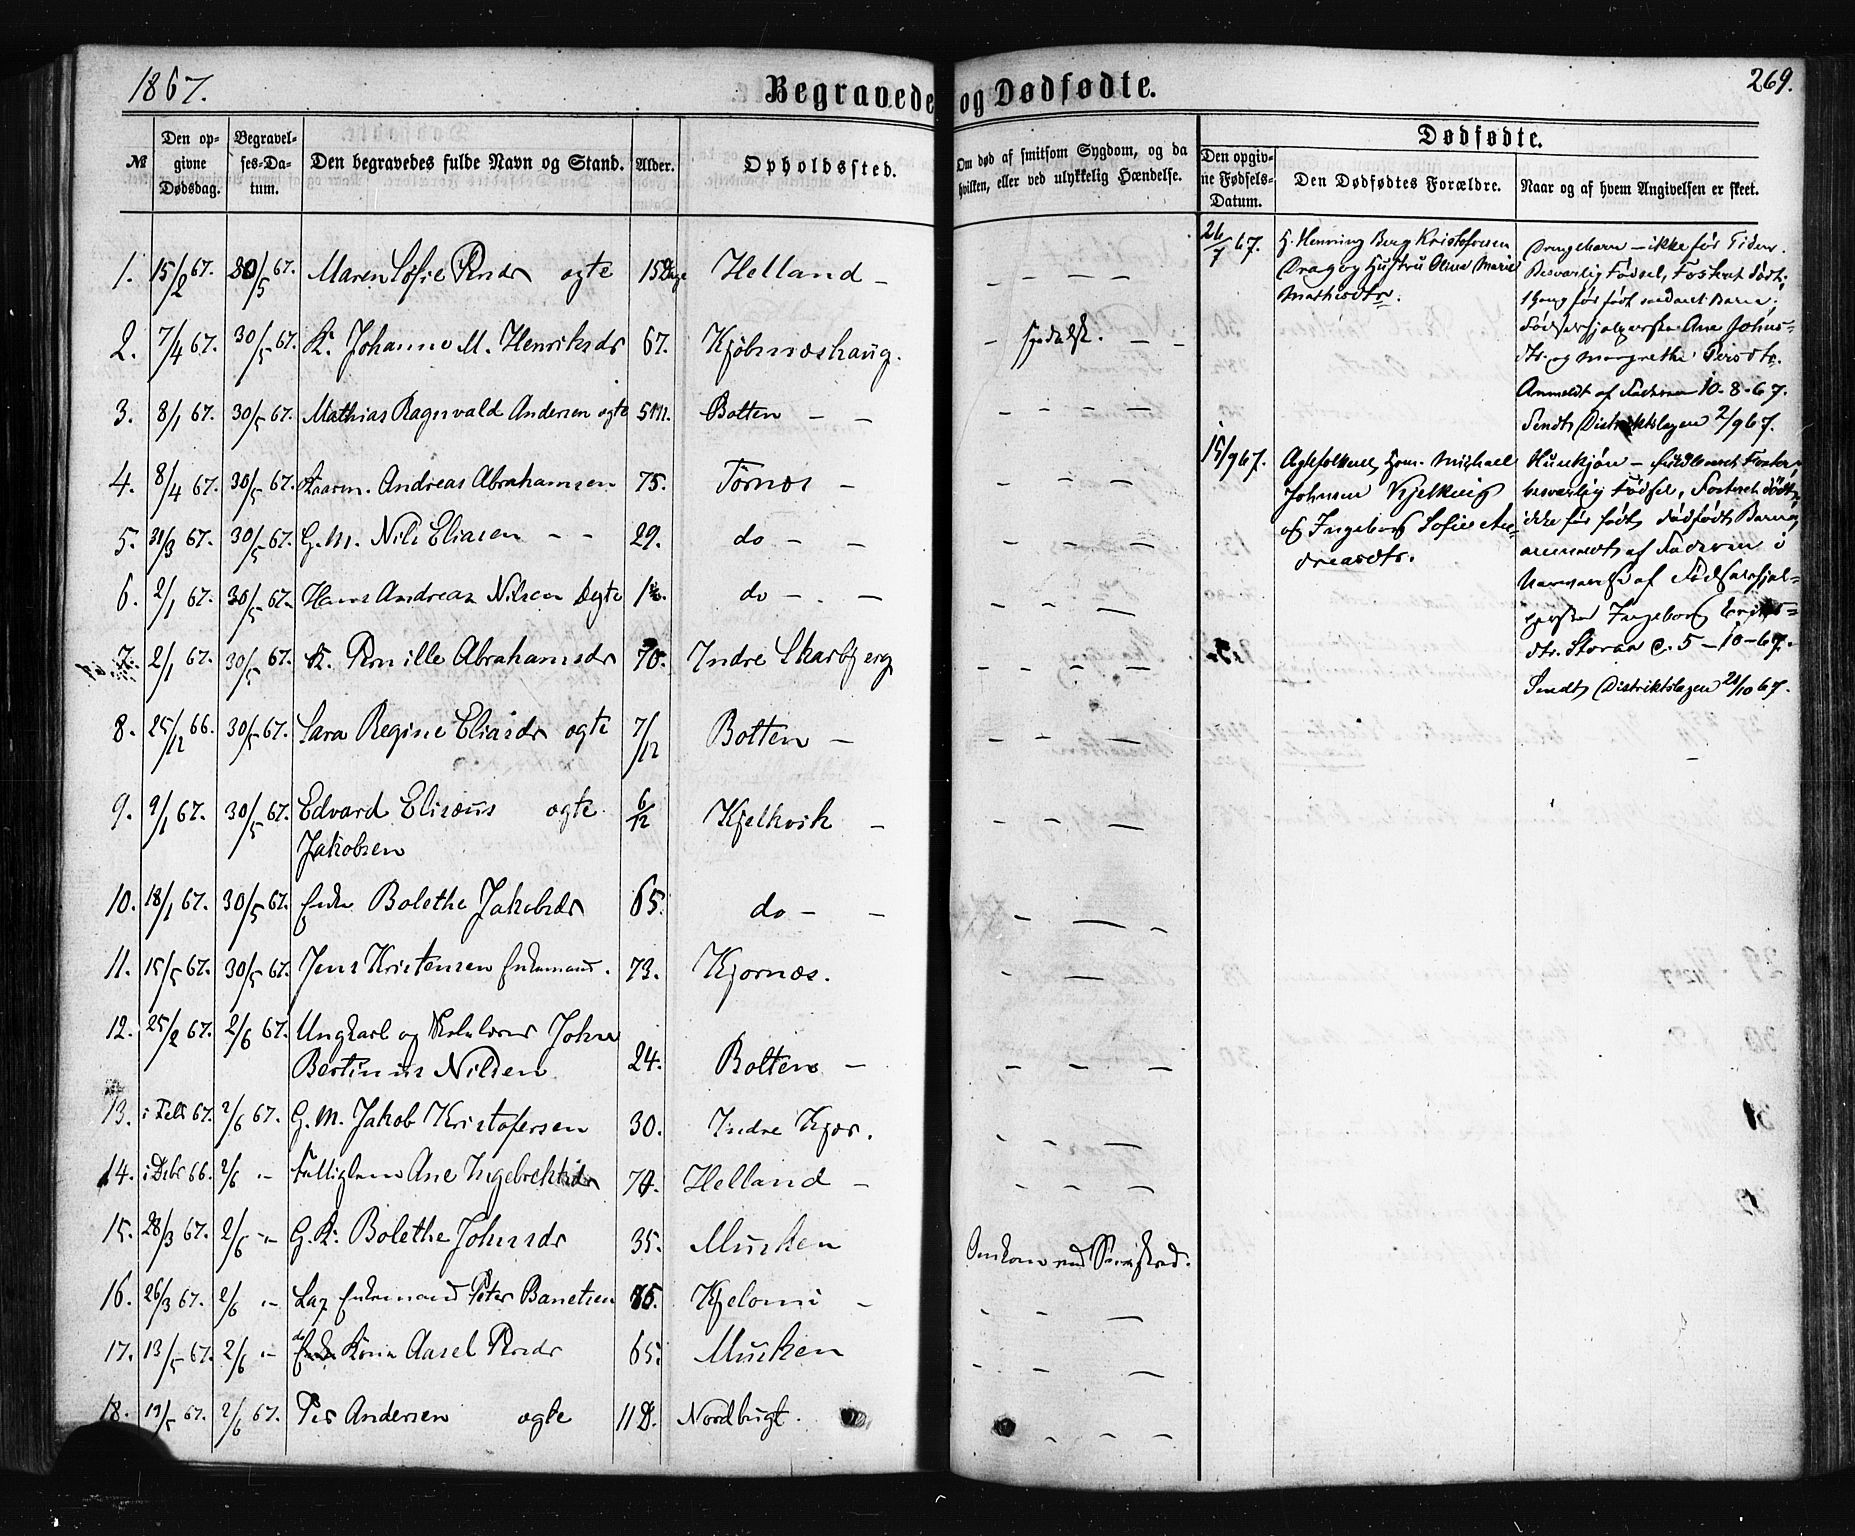 1867.
Begravede og Dødfødte.
269.
№
Den op-
givne
Dødsdag.
Begravel-
ses-Da-
tum.
Den begravedes fulde Navn og Stand.
Alder.
Opholdssted.
Om død af smitsom Sygdom, og da
hvilken, eller ved ulykkelig Hændelse.
Dødfødte.
Den opgiv-
ne Fødsels-
Datum.
Den Dødfødtes Forældre.
Naar og af hvem Angivelsen er skeet.
1. 15/2 67. 30/5 67. Maren Sofie Persdr ægte 15 Dage Helland – – – –
2. 7/4 67. 30/5 67. K. Johanne M. Henriksdr 67. Kjøbnæshaug. – spedalsk. – –
3. 8/1 67. 30/5 67. Mathias Ragnvald Andersen ægte 5 M. Botten – – – – – –
4. 8/4 67. 30/5 67. Andreas Abrahamsen 75. Tørnæs – – – –
5. 31/3 67. 30/5 67. G. M. Nils Eliasen – – 29. do – – – – – –
6. 2/1 67. 30/5 67. Hans Andreas Nilsen ægte do – . – – – – –
7. 2/1 67. 30/5 67. K. Pernille Abrahamsdr 70. Indre Skarbjerg – – – –
8. 25/12 66. 30/5 67. Sara Regine Eliasdr ægte 7/12 Botten – – – –
9. 9/1 67. 30/5 67. Edvard Elisæus ægte 6/12 Kjelkvik – – – –
Jakobsen
10. 18/1 67. 30/5 67. Enke Bolethe Jakobsdr 65. do – – – – –
11. 15/5 67. 30/5 67. Jens Kristensen Enkemand. 73. Kjornæs. – – –
12. 25/2 67. 2/6 67. Ungkarl og Skolelærer Johan
Bertinius Nilsen 24. Botten – – – –
13. i Febr 67. 2/6 67. G. M. Jakob Kristofersen 30. Indre Kjær. – – –
14. i Debr 66. 2/6 " Fattiglem Ane Ingebrektsdr 70. Helland – – – –
15. 28/3 67. 2/6 " G. K. Bolethe Johnsdr 35. Musken Omkom ved Sneeskred.
16. 26/3 67. 2/6 " Lap Enkemand Peter Banetsen 85. Kjelomi – – – –
17. 13/5 67. 2/6 " Aasel Persdr 65. Musken – – –
18. 13/5 67. 2/6 67. Per Andersen ægte 11 D. Nordbugt. – – – –
26/7 67. G. Henning Berg Kristofersen
Drag og Hustru Oline Marie
Mathisdtr.
Drengebarn – ikke før Tiden.
Besværlig Fødsel, Fostret dødt,
1 Gang før født saadant Barn;
Fødselshjælperske Ane Johns-
dtr. og Margrethe Persdtr.
Anmeldt af Faderen 10-8-67.
Sendt Distriktslægen 2/9 67.
15/9 67. Ægtefolkene, Michael
Johnsen Kjelkvig
og Ingeborg Sofie An-
dreasdtr.
Hunkjøn – fuldbaaret Foster,
besværlig Fødsel, Fostret dødt,
ikke før født dødfødt Barn og
anmeldt af Faderen i
Nærværelse af Fødselshjæl-
persken Ingeborg
dtr. 5–10–67.
Sendt Distriktslægen 21/10 67.